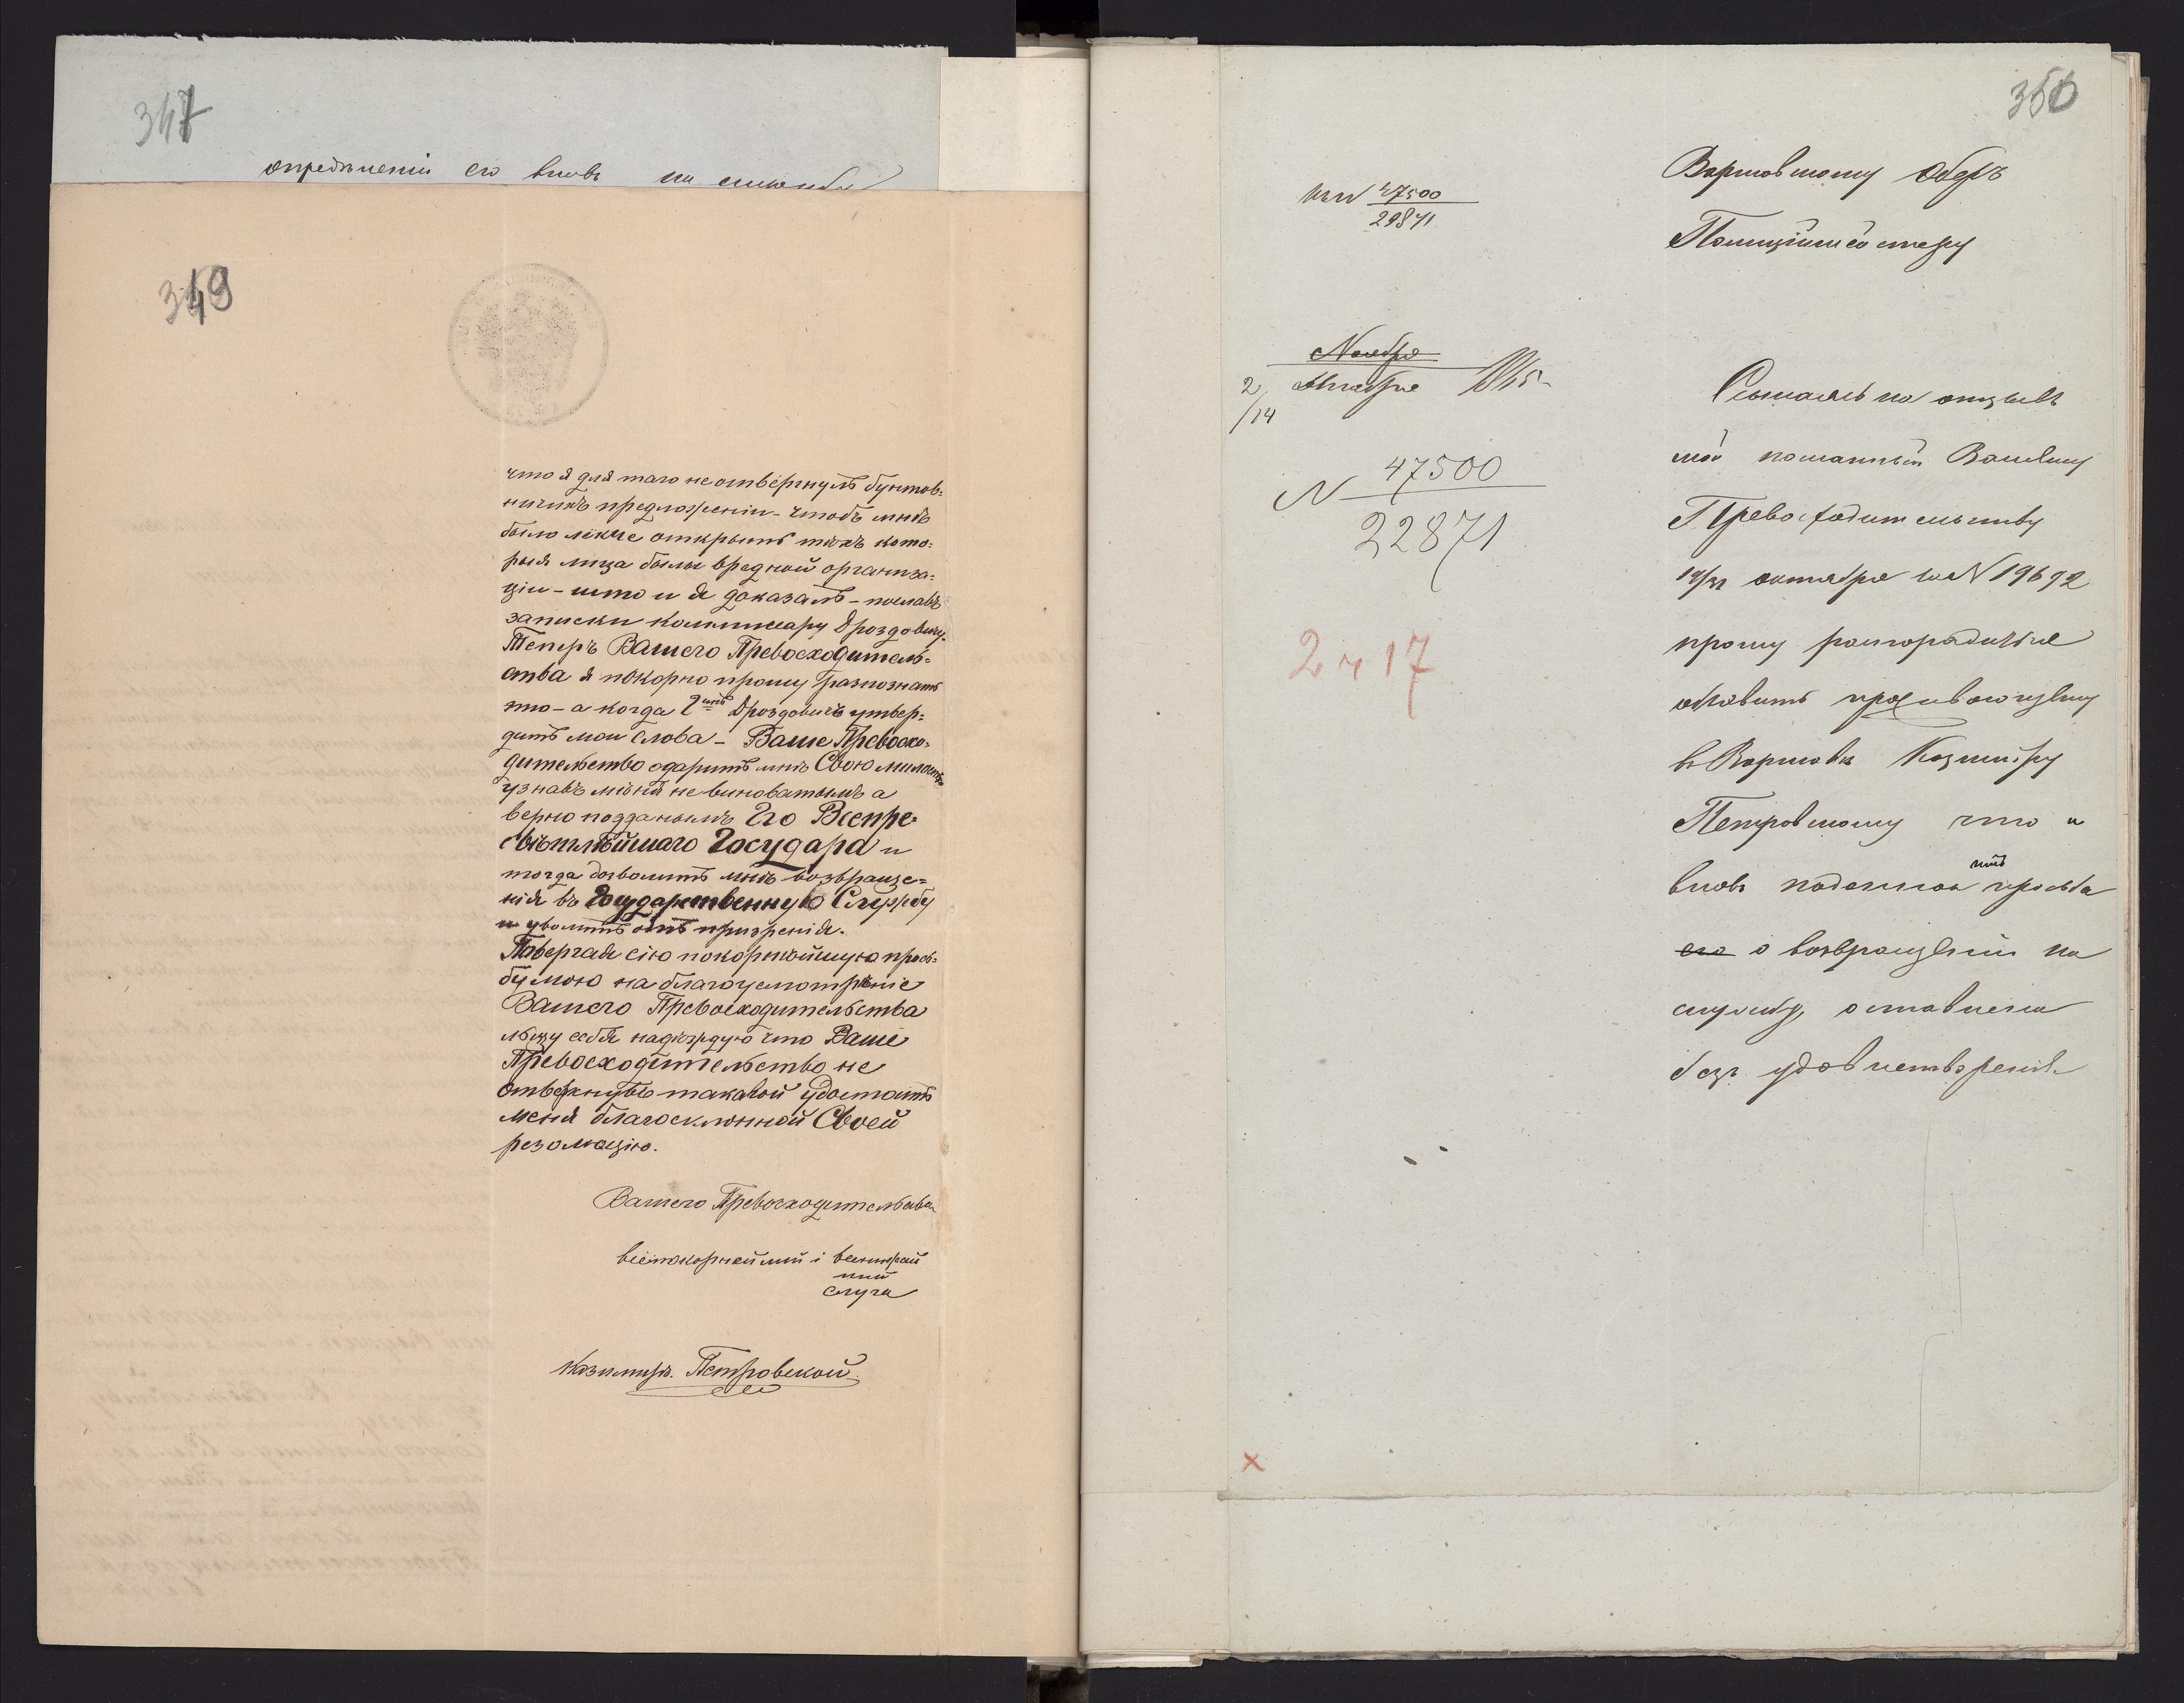 347
опредѣленіи его вновь на службу
349
что я для того не отвергнулъ бунтов=
ничихъ предложеніи - чтобъ мнѣ
было лекче открыть тѣхъ кото=
рыя лица были вредной организа=
ціи - што и я доказалъ - пославъ
записки коммисару Дроздовичу.
Теперъ Вашего Превосходитель=
ства я покорно прошу разпознать
это - а когда Гнъ Дроздовичъ утвер=
дитъ мои слова - Ваше Превосхо=
дительство одаритъ мнѣ Свою милость
узнавъ мѣня не виноватымъ а
верно подданымъ Его Всепре=
свѣтлѣйшаго Государа и
тогда дозволитъ мнѣ возвраще=
нія въ Государственную Службу
и уволитъ отъ призренія.
Повергая сію покорнѣйшую прозь=
бу мою на благоусмотрѣніе
Вашего Превосходительства
льщу себя надѣждую что Ваше
Превосходительство не
отвергнувъ таковой удостоитъ
меня благосклонной Своей
резолюцію.
Вашего Превосходительства
всепокорнейший і
слуга
Казимиръ Петровской
350
Варшавскому Оберъ
Полиціймейстеру
на N 47500
29871
Ноября
2/14 Декабря 1865
N 47500
22871
2 ч 17
Ссылаясь на отзывъ
мой посланный Вашему
Превосходительству
19/31 октября за N 19692
прошу распорядиться
объявить проживающему
въ Варшавѣ Казиміру
Петровскому что и
вновь поданная имъ прозьба
его о возвращеніи на
службу, оставлена
безъ удовлетворенія
x